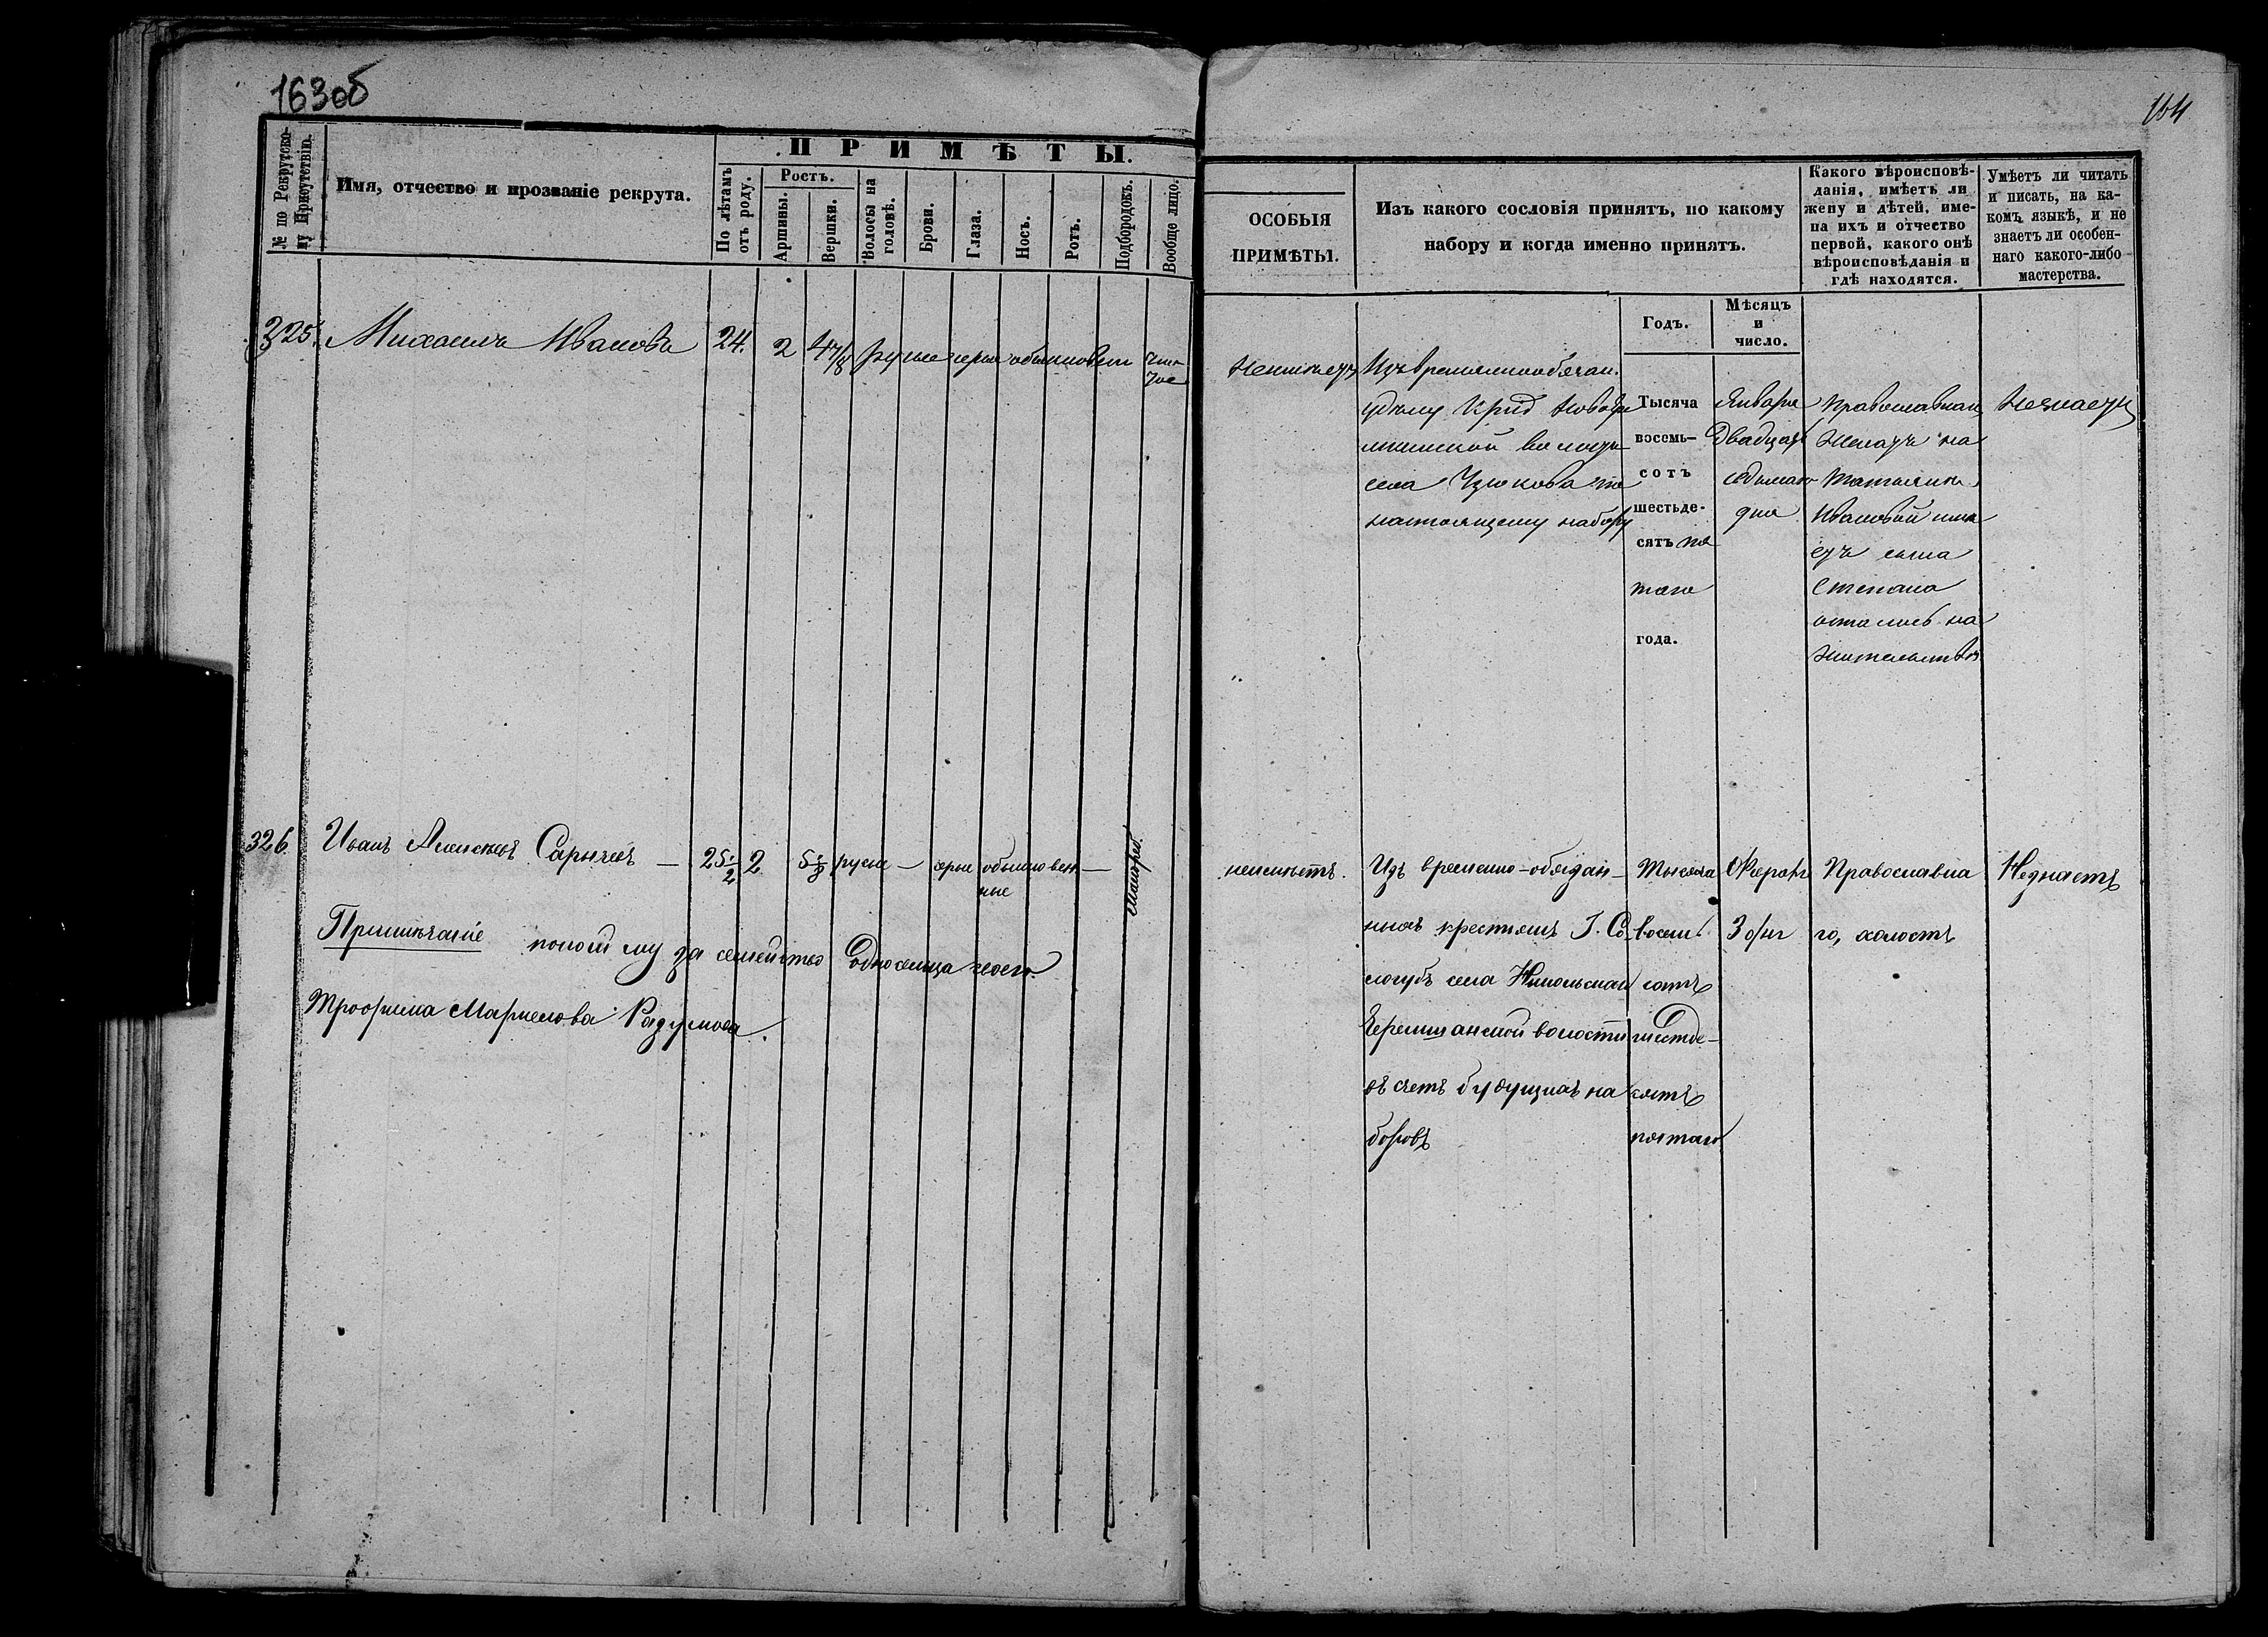 163об
164
№ по Рекрутско-
му Присутствію.
Имя, отчество и прозваніе рекрута.
ПРИМѢТЫ.
По лѣтамъ
отъ роду.
Ростъ.
Аршины.
Вершки.
Волосы на
головѣ.
Брови.
Глаза.
Носъ.
Ротъ.
Подбородокъ.
Вообще лицо.
ОСОБЫЯ
ПРИМѢТЫ.
Изъ какого сословія принятъ, по какому
набору и когда именно принятъ.
Какого вѣроисповѣ-
данія, имѣетъ ли
жену и дѣтей, име-
на ихъ и отчество
первой, какого онѣ
вѣроисповѣданія и
гдѣ находятся.
Умѣетъ ли читать
и писать, на ка-
комъ языкѣ, и не
знаетъ ли особен-
наго какого-либо
мастерства.
Годъ.
Мѣсяцъ
и
число.
325. Михаилъ Ивановъ 24. 2 4 7/8 русые серые обыкновен чис-
тое
Неимѣетъ
Изъ временнообязан.
волости
села
настоящему набору
Тысяча
восемь-
сотъ
шестьде-
сятъ пя
таго
года.
Января
двадцать
седьмаго
дня
Православнаго
Женатъ на
Татьяне
Ивановой име
етъ сына
Степана
остались на
жительстве
Незнаетъ
326. Иванъ Алексеевъ Сарычевъ — 25 1/2 2 5 1/8 русые — серые обыкновен —
ные
неимѣетъ.
Изъ временно-обязан-
ныхъ крестьянъ Г. Со
логубъ села Никольскаго
Черемшанской волости
въ счетъ будущихъ на
боровъ
Тысяча
восемь
сотъ
шестьде-
сятъ
пятаго
Февраля
3 дня
Православна
го, холостъ
Незнаетъ
Примѣчаніе пошолъ за семейство односельца своего
Трофима Маркелова Разумова.